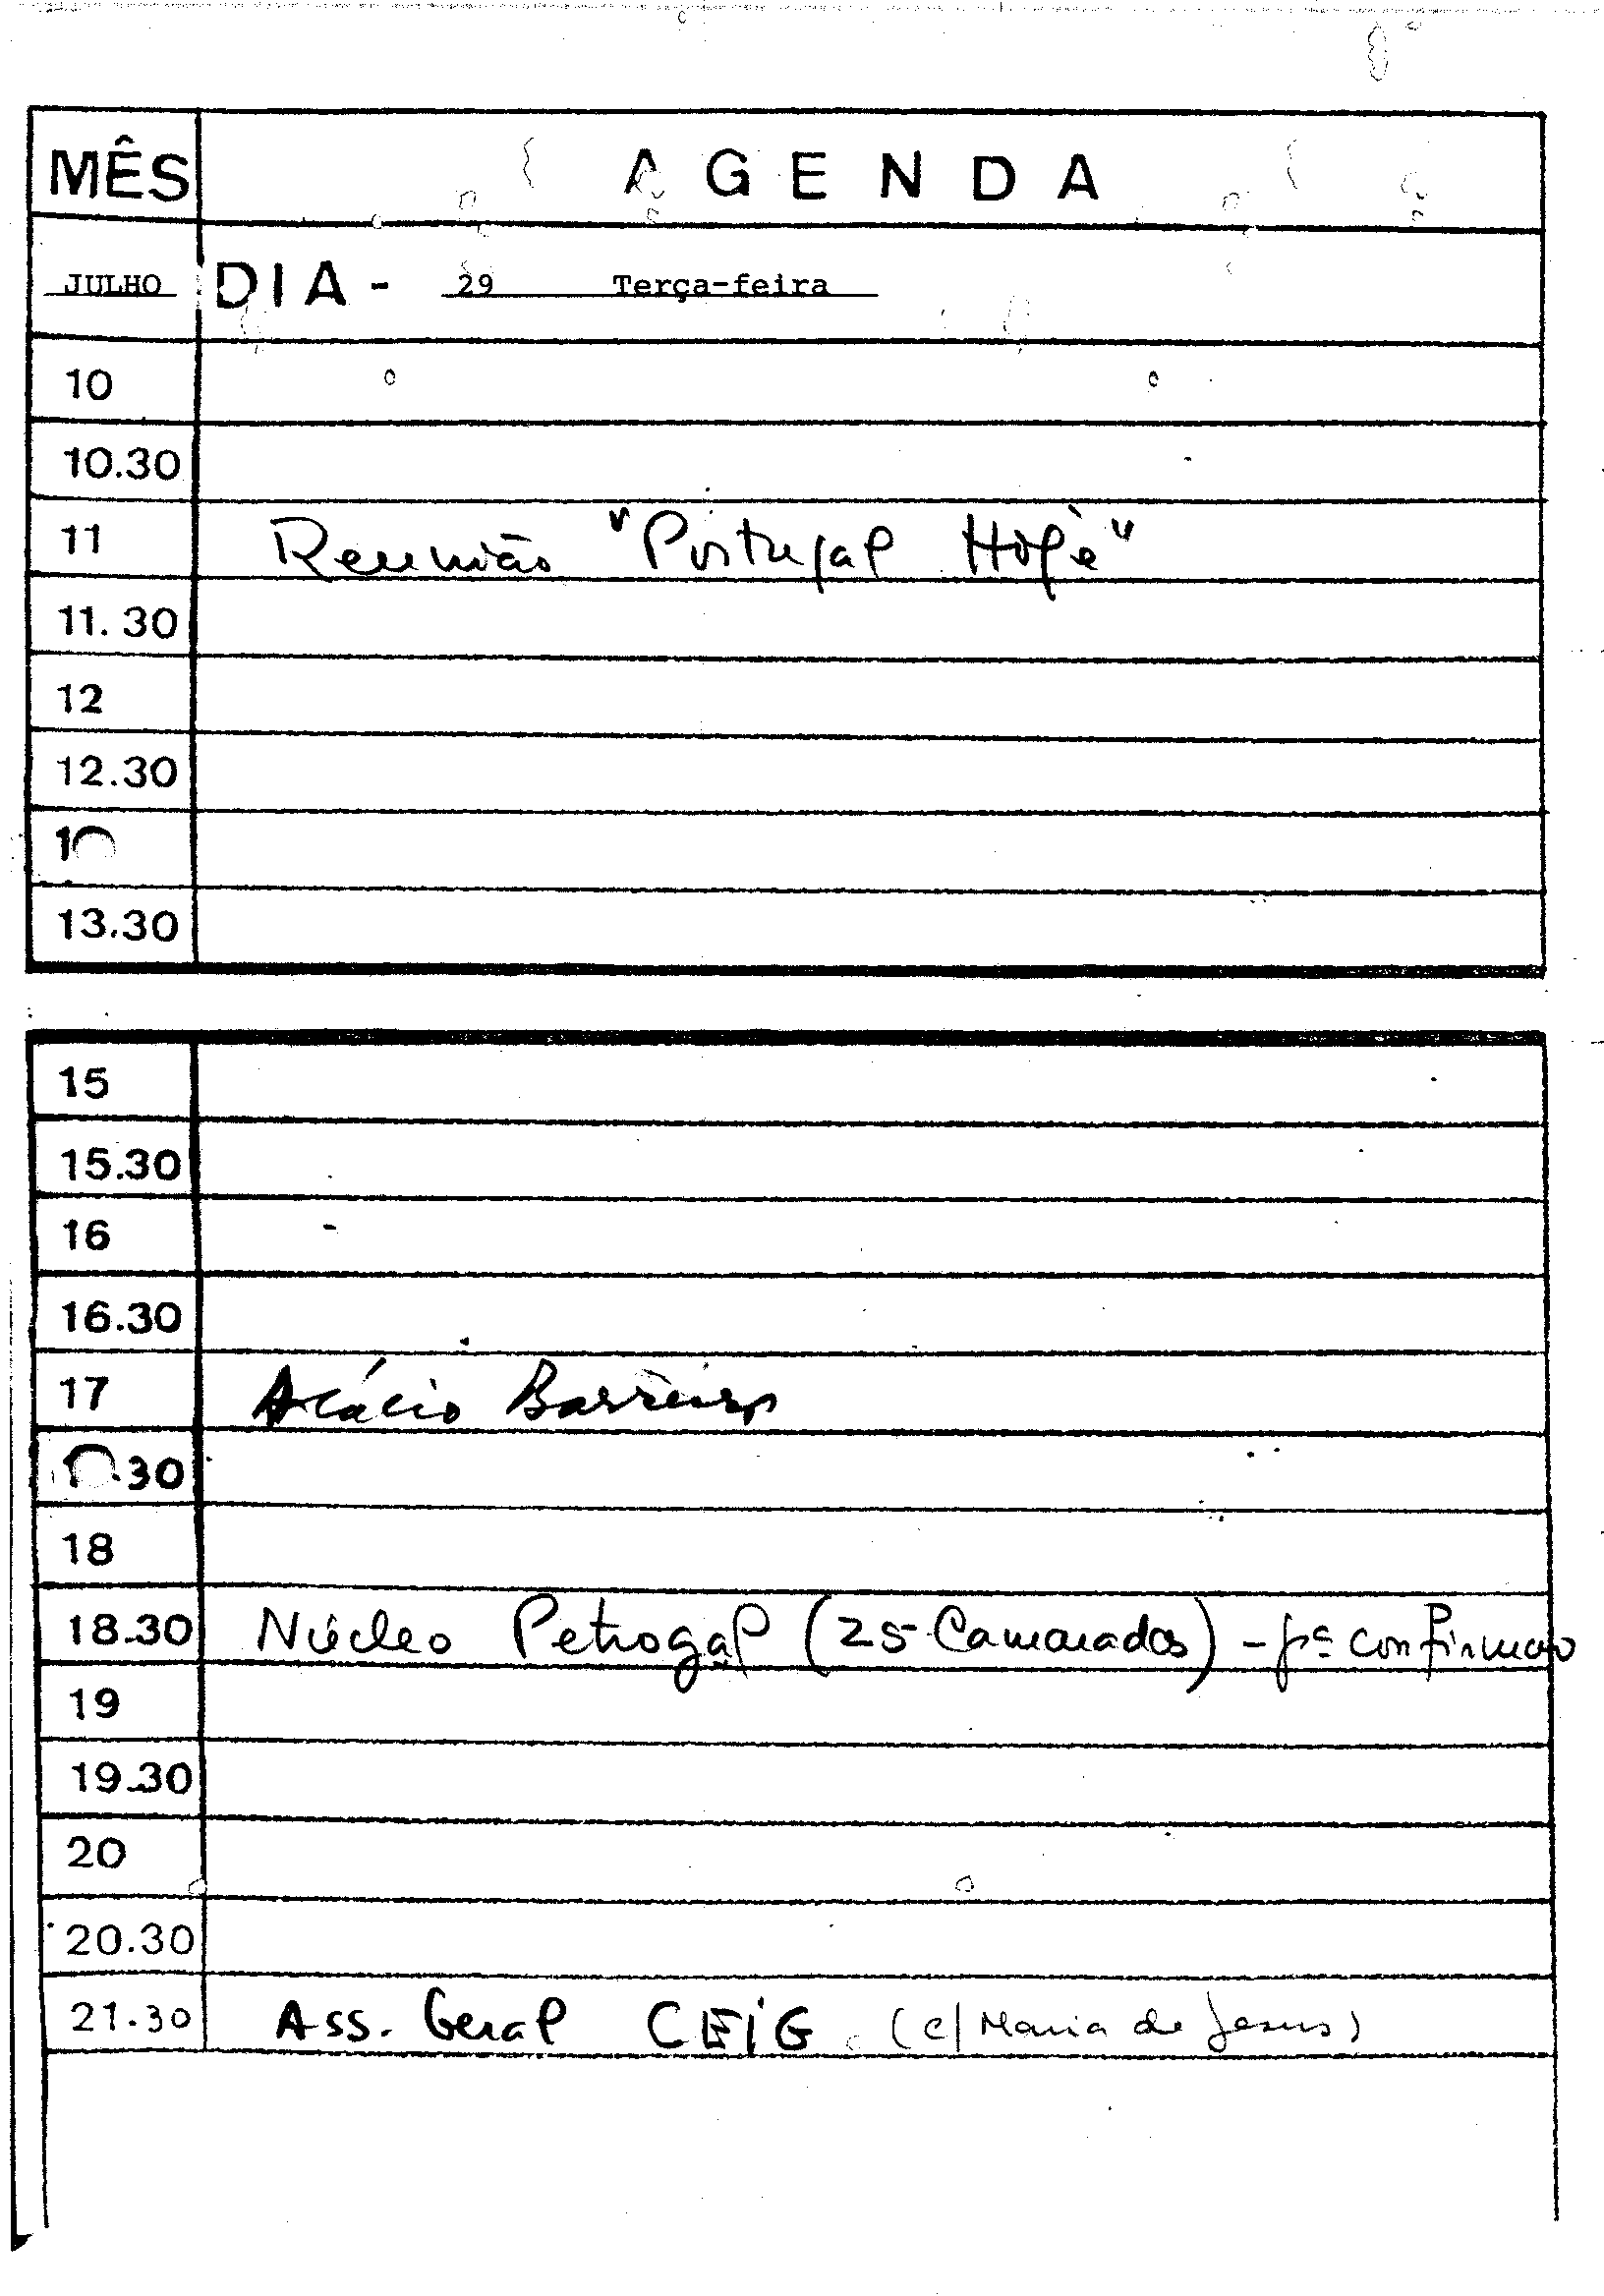 MÊS AGENDA
JULHO DIA - 29 Terça-feira
10
10.30
11 Reunião "Portugal Hoje"
11.30
12
12.30
1
13.30
15
15.30
16
16.30
17 Acácio Barreiros
1 .30
18
18.30 Núcleo Petrogal (25 Camaradas) - pª confirmar
19
19.30
20
20.30
21.30 Ass. Geral CEIG (c/ Maria de Jesus)